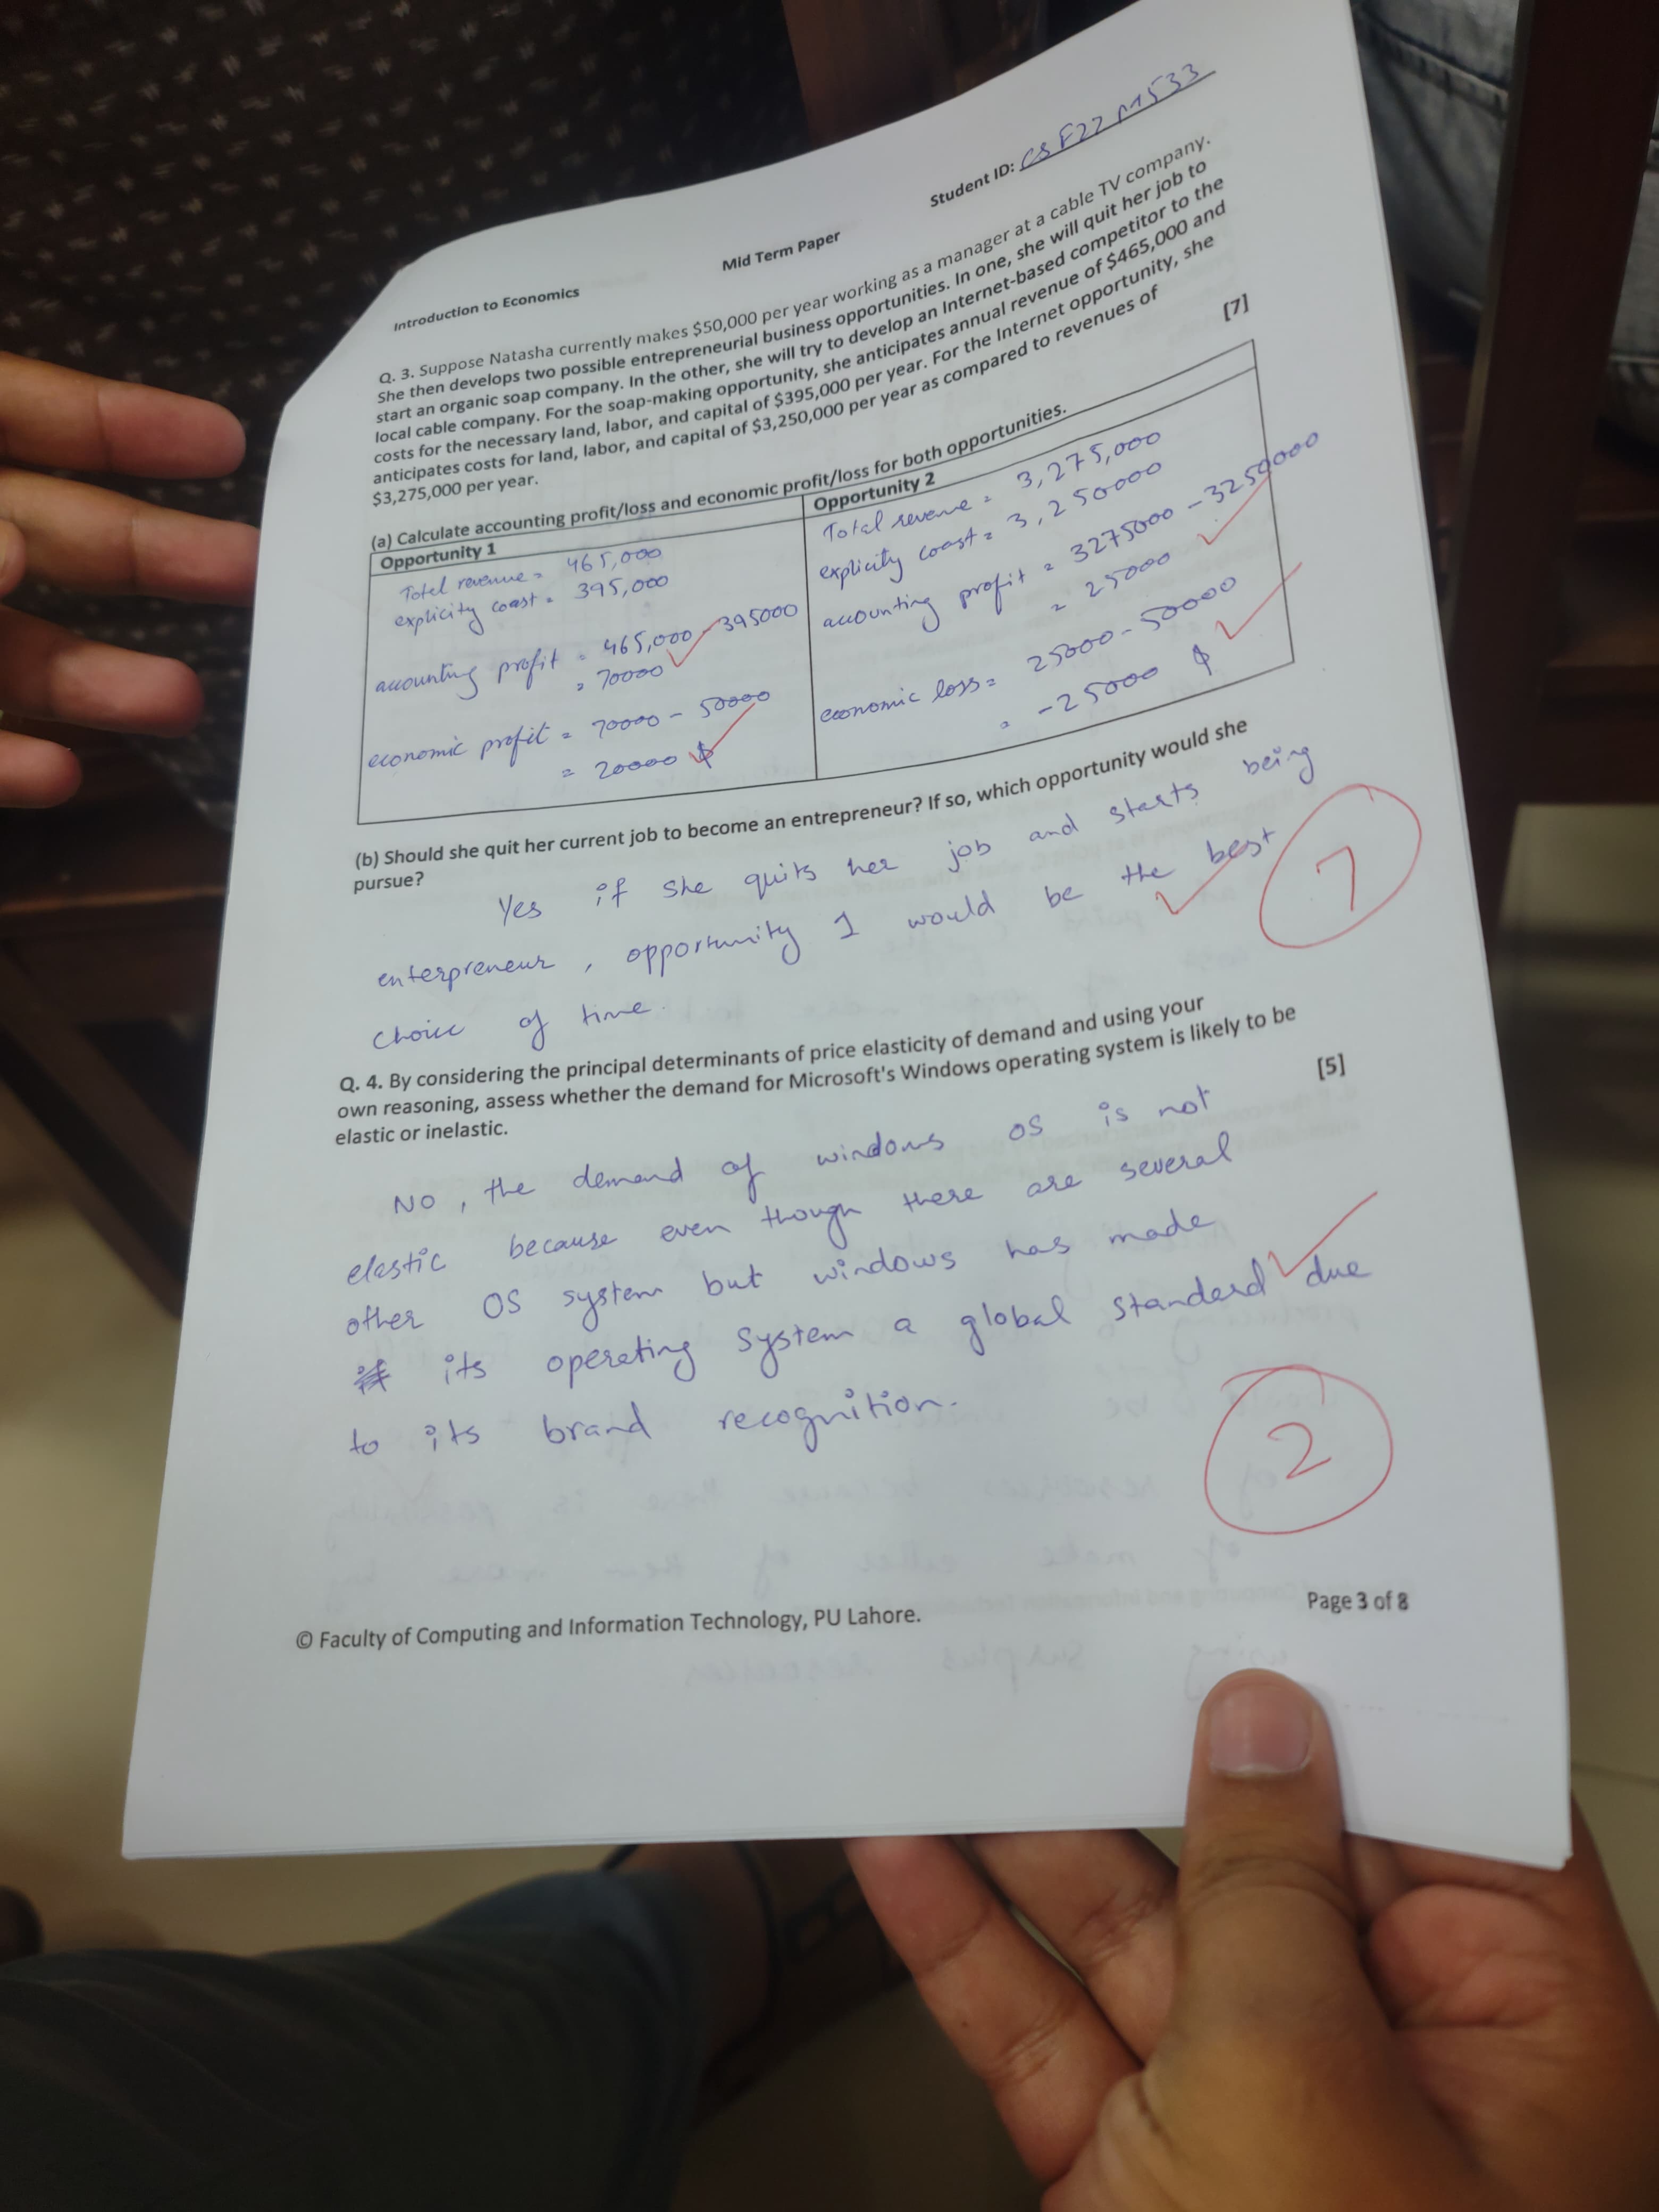 Student ID: CSF22M533
Introduction to Economics
Mid Term Paper
Q. 3. Suppose Natasha currently makes $50,000 per year working as a manager at a cable TV company.
She then develops two possible entrepreneurial business opportunities. In one, she will quit her job to
start an organic soap company. In the other, she will try to develop an Internet-based competitor to the
local cable company. For the soap-making opportunity, she anticipates annual revenue of $465,000 and
costs for the necessary land, labor, and capital of $395,000 per year. For the Internet opportunity, she
anticipates costs for land, labor, and capital of $3,250,000 per year as compared to revenues of
$3,275,000 per year.
[7]
(a) Calculate accounting profit/loss and economic profit/loss for both opportunities.
Opportunity 1
Total revenue = 465,000
explicity coast = 395,000
accounting profit = 465,000 - 395000
= 70000
economic profit = 70000 - 50000
= 20000 $
Opportunity 2
Total revenue = 3,275,000
explicity coast = 3,250000
accounting profit = 3275000 - 3250000
= 25000
economic loss = 25000 - 50000
= -25000 $
(b) Should she quit her current job to become an entrepreneur? If so, which opportunity would she
pursue?
Yes if she quits her job and starts being
enterpreneur, opportunity 1 would be the best
choice of time.
7
Q. 4. By considering the principal determinants of price elasticity of demand and using your
own reasoning, assess whether the demand for Microsoft's Windows operating system is likely to be
elastic or inelastic.
[5]
NO, the demand of windows OS is not
elastic because even though there are several
other OS system but windows has made
its operating system a global standerd due
to its brand recognition.
2
© Faculty of Computing and Information Technology, PU Lahore.
Page 3 of 8